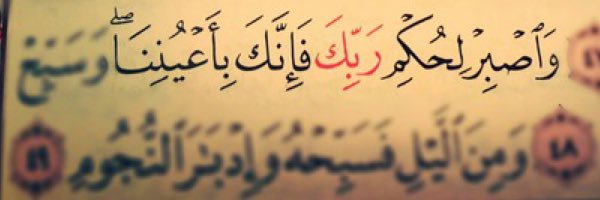 ٤٧ وَٱصْبِرْ لِحُكْمِ رَبِّكَ فَإِنَّكَ بِأَعْيُنِنَا ۖ وَسَبِّحْ
٤٨ وَمِنَ ٱلَّيْلِ فَسَبِّحْهُ وَإِدْبَٰرَ ٱلنُّجُومِ ٤٩